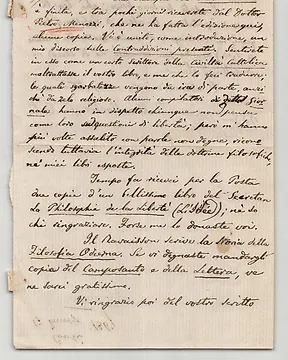 è finita, e tra pochi giorni riceverete dal Dottor
Pietro Menozzi, che ne ha fatta l'edizione
alcune copie. Vi è unito, come introduzione, un
mio discorso delle Contraddizioni presenti. Sentirete
in esso come un certo scrittore della Civiltà Cattolica
maltrattasse il vostro libro, e me che lo feci tradurre;
le quali garbatezze vengono da ira di parte, anzi
che da zelo religioso. Alcuni compilatori di Gior
nale hanno in dispetto chiunque non pensa
come loro sul di libertà; però m'hanno
più volte assalito con parole non degne, ricono
scendo tuttavia l'integrità della dottrina filosofica,
ne' miei libri esposta.
Tempo fa ricevei per la Posta
due copie d'un bellissimo libro del Secrétan
La Philosophie de la Liberté (L'Idée); nè so
chi ringraziare. Forse me lo donaste voi.
Il Ravaisson scrisse la Storia della
Filosofia Odierna. Se vi degnaste mandargli
copia del Camposanto e della Lettera, ve
ne sarei gratissimo.
Vi ringrazio poi del vostro scritto